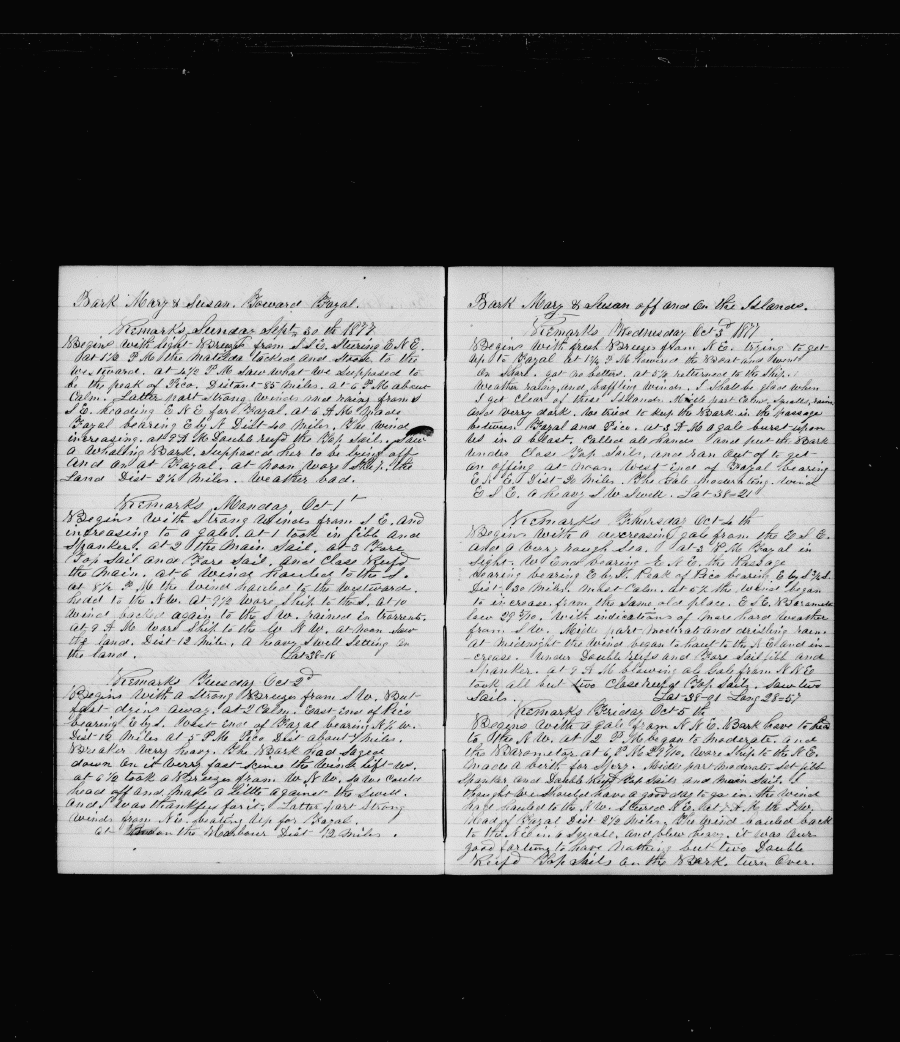 Bark Mary & Susan. Toward Fayal.
Remarks Sunday Sept 30th 1877
Begins with light Breeze from S.S.E. Steering E.N.E.
At 1½ P M the Matilda tacked and Stood to the
westward. at 4½ P M Saw what we Supposed to
be the peak of Pico. Distant 85 miles. at 6 P M about
Calm. Latter part Strong winds and rainy from S
S E. heading E N E for Fayal. at 6 A M made
Fayal bearing E by N Dist 40 miles. The wind
increasing. at 9 A M Double reefd the Top Sails. Saw
a Whaling Bark. Supposed her to be lying off
and on at Fayal. at noon Wore Ship. the
Land Dist 2½ miles. Weather bad.
Remarks Monday Oct 1st
Begins with Strong Winds from S E. and
increasing to a gale. at 1 took in jibb and
Spanker. at 2 the Main Sail. at 3 Fore
Top Sail and Fore Sail. and Close Reefd
the Main. at 6 Wind hauled to the S.
at 8½ P M the Wind hauled to the Westward.
heded to the N W. at 9½ Wore Ship to the S. at 10
Wind backed again to the S W. rained in torrents.
at 9 A M Ware Ship to the W N W. at noon Saw
the land. Dist 12 Mile. A heavy Swell Setting on
the land. Lat 38-18
Remarks Tuesday Oct 2d
Begins with a Strong Breeze from S W. But
fast dying away. at 2 Calm. East End of Pico
bearing E by S. West end of Fayal bearing N ½ W.
Dist 16 Miles at 5 P M Pico Dist about 7 miles.
Breaker very heavy. the Bark had Saged
down on it very fast Since the Wind left us.
at 6½ took a Breeze from W N W. So we Could
head off and make a little against the Swell.
and I was thankful for it. Latter part strong
winds from N E. beating up for Fayal.
at noon the Harbour Dist 12 Miles.
Bark Mary & Susan off and On the Islands.
Remarks Wednesday Oct 3d 1877
Begins with fresh Breeze from N E. trying to get
up to Fayal at 1½ P M lowered the Boat and Went
On Shore. got no letters. at 5½ returned to the Ship.
Weather rainy, and baffling winds. I Shall be glad when
I get Clear of these Islands. Middle part Calms, Squalls, rain
and very dark. We tried to keep the Bark in the passage
between Fayal and Pico. at 3 A M a gale burst upon
us in a blast. Called all hands and put the Bark
under Close Top Sails, and ran out of to get
an offing at noon West end of Fayal bearing
E by S Dist 20 miles. The Gale Moderating. Wind
E S E. a heavy S W Swell. Lat 38-21
Remarks Thursday Oct 4th
Begins With a decreasing gale from the E S E.
and a very rough Sea. at 3 P M Fayal in
Sight. W End bearing E N E. the Passage
bearing bearing E by S. Peak of Pico bearing E by S ½ S.
Dist 30 miles. Most Calm. at 5½ the Wind began
to increase from the same old place. E S E. Barometer
low 29 With indications of more hard weather
from S W. Middle part moderate and drisling rain
at Midnight the wind began to haul to the N E and in-
-crease. Under Double Reefs and Fore Sail jibb and
Spanker. at 9 A M blowing a Gale from N N E
took all but two Close reefd Top Sails. Saw two
Sails. Lat 38-21 Long 28=57
Remarks Friday Oct 5th
Begins With a gale from N N E. Bark hove to Hed
to the N W. at 12 P M began to moderate, and
the Barometer, at 6 P M Wore Ship to the N E.
Middle part moderate. Set jibb
Spanker and Double Reefd Top Sails and Main Sail. I
thought we Should have a good day to go in. the Wind
haf hauled to the N W. Steered N E. At 7 A. M. the N W.
Head of Fayal Dist 2½ Miles. The Wind hauled back
to the N E in a Squall, and blew heavy, it was our
good fortune to have nothing but two Double
Reefd Top Sails On the Bark. turn Over.